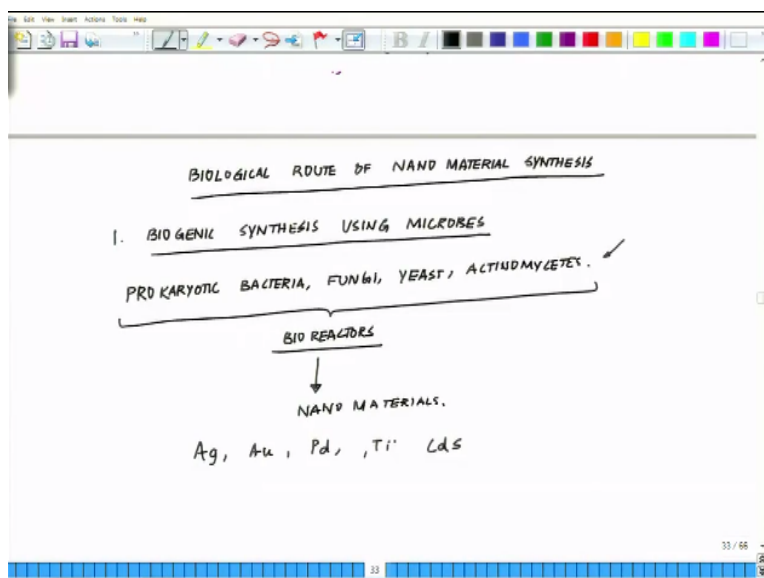 File Edit View Insert Actions Tools Help
B I
BIOLOGICAL ROUTE OF NANO MATERIAL SYNTHESIS
1. BIOGENIC SYNTHESIS USING MICROBES
PROKARYOTIC BACTERIA, FUNGI, YEAST, ACTINOMYCETES.
BIO REACTORS
NANO MATERIALS.
Ag, Au, Pd, ,Ti CdS
33/66
33